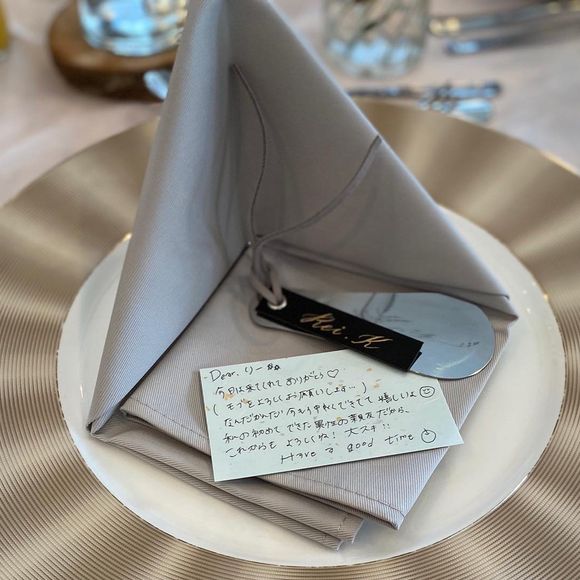 Kei.K
Dear. りーぬ
今日は来てくれてありがとう♡
(モフをよろしくお願いします…)
なんだかんだ今も仲良くできてて嬉しいよ☺
私の初めてできた異性の親友だから、
これからもよろしくね！大スキ!!
Have a good time